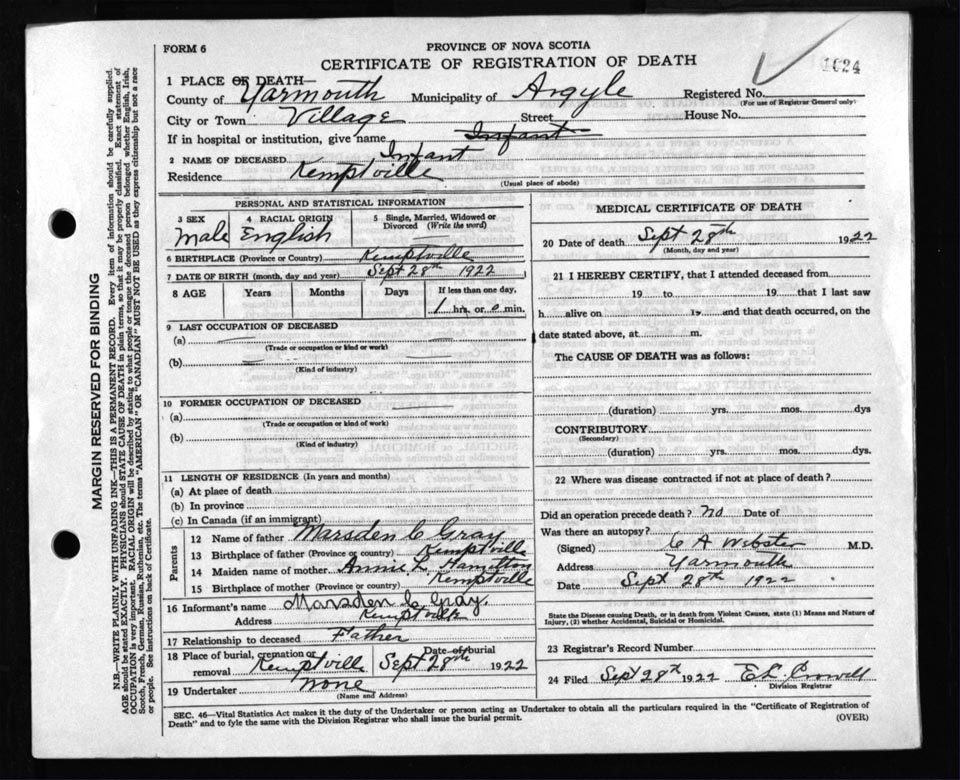 FORM 6
PROVINCE OF NOVA SCOTIA
CERTIFICATE OF REGISTRATION OF DEATH
1624
1 PLACE OF DEATH—
County of Yarmouth Municipality of Argyle Registered No.
(For use of Registrar General only)
City or Town Village Street House No.
If in hospital or institution, give name Infant
2 NAME OF DECEASED Infant
Residence Kemptville
(Usual place of abode)
PERSONAL AND STATISTICAL INFORMATION
3 SEX 4 RACIAL ORIGIN 5 Single, Married, Widowed or Divorced (Write the word)
Male English —
6 BIRTHPLACE (Province or Country) Kemptville
7 DATE OF BIRTH (month, day and year) Sept 28th 1922
8 AGE Years Months Days If less than one day,
1 hrs. or 0 min.
9 LAST OCCUPATION OF DECEASED
(a) —
(Trade or occupation or kind or work)
(b) —
(Kind of industry)
10 FORMER OCCUPATION OF DECEASED
(a)
(Trade or occupation or kind of work)
(b)
(Kind of industry)
11 LENGTH OF RESIDENCE (In years and months)
(a) At place of death
(b) In province
(c) In Canada (if an immigrant)
Parents
12 Name of father Marsden C Gray
13 Birthplace of father (Province or country) Kemptville
14 Maiden name of mother Annie L Hamilton
15 Birthplace of mother (Province or country) Kemptville
16 Informant's name Marsden C Gray.
Address Kemptville
17 Relationship to deceased Father
18 Place of burial, cremation or removal Kemptville Date of burial Sept 28th 1922
19 Undertaker None
(Name and Address)
MEDICAL CERTIFICATE OF DEATH
20 Date of death Sept 28th 1922
(Month, day and year)
21 I HEREBY CERTIFY, that I attended deceased from
19 to 19 that I last saw
h alive on 19 and that death occurred, on the
date stated above, at m.
The CAUSE OF DEATH was as follows:
(duration) yrs. mos. dys
CONTRIBUTORY
(Secondary)
(duration) yrs. mos. dys.
22 Where was disease contracted if not at place of death?
Did an operation precede death? No Date of
Was there an autopsy?
(Signed) C A Webster M.D.
Address Yarmouth
Date Sept 28th 1922
State the Disease causing Death, or in death from Violent Causes, state (1) Means and Nature of
Injury, (2) whether Accidental, Suicidal or Homicidal.
23 Registrar's Record Number
24 Filed Sept 28th 1922 E L Crowell
Division Registrar
SEC. 46—Vital Statistics Act makes it the duty of the Undertaker or person acting as Undertaker to obtain all the particulars required in the "Certificate of Registration of
Death" and to fyle the same with the Division Registrar who shall issue the burial permit.
(OVER)
MARGIN RESERVED FOR BINDING
N.B.—WRITE PLAINLY WITH UNFADING INK—THIS IS A PERMANENT RECORD. Every item of information should be carefully supplied.
AGE should be stated EXACTLY. PHYSICIANS should STATE CAUSE OF DEATH in plain terms, so that it may be properly classified. Exact statement of
OCCUPATION is very important. RACIAL ORIGIN will be described by stating to what people or tongue the deceased person belonged whether English, Irish,
Scotch, French, German, Russian, Ruthenian, etc. The terms "AMERICAN" OR "CANADIAN" MUST NOT BE USED as they express citizenship but not a race
or people. See instructions on back of Certificate.